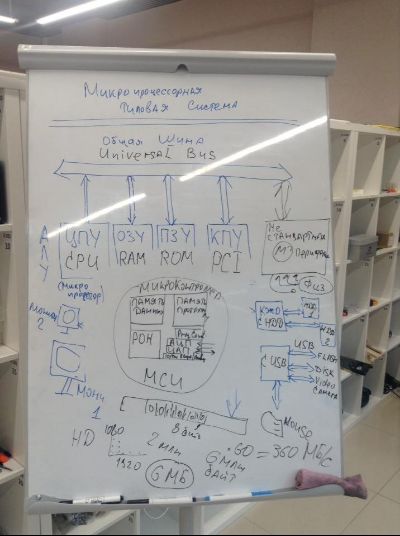 Микропроцессорная
типовая система
Общая шина
Universal Bus
АЛУ
ЦПУ
CPU
ОЗУ
RAM
ПЗУ
ROM
КПУ
PCI
Не
стандартная
периферия
(микро
процессор)
Физ
Микроконтроллер
Память
данных
Память
программ
РОН
АЦП
ЦАП
МСИ
2
Мони
1
HDD
HDD
2
USB
C USB
USB
FLASH
DISK
Video
camera
Mouse
8 бит
HD
1080
1920
2 млн
6 МБ
6 млн
байт
·60 = 360 МБ/с